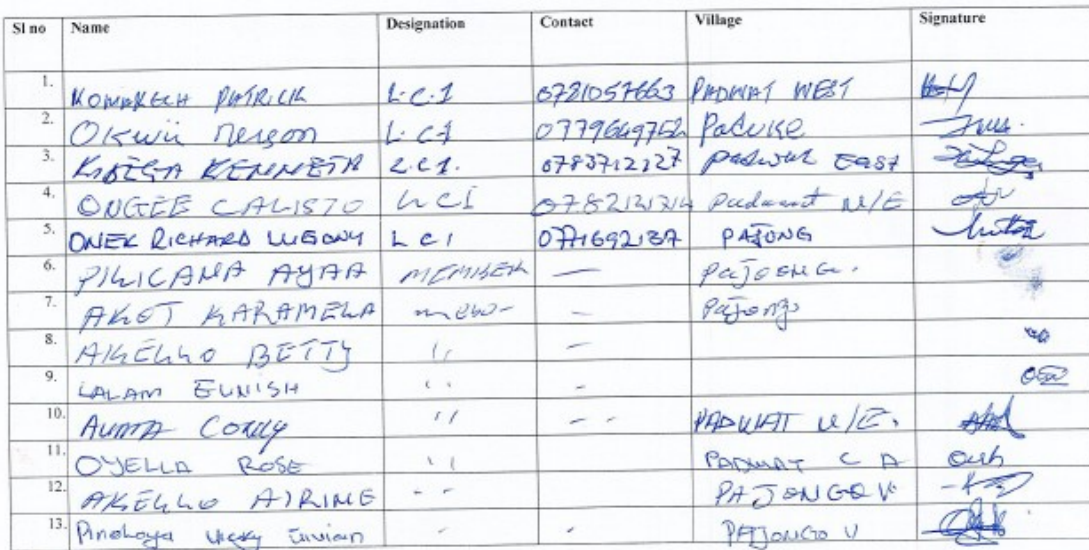 Sl no Name Designation Contact Village Signature
1. KOMAKECH PATRICK L.C.1 0781057663 PADWAT WEST
2. Okwii Nelson L.C1 0779649752 Paduke
3. KIBEGA KENNETH L.C1. 0783712127 Padwat EAST
4. ONGEE CALISTO LCI Padwat N/E
5. ONEK RICHARD LUGONY L C I 0771692137 PAJONG
6. AYAA MEMBER — Pajoeng.
7. AKOT KARAMELA — Pajongo
8. AKELLO BETTY " -
9. LALAM EUNISH " -
10. AUMA " - - PADWAT N/E.
11. OYELLA ROSE " PADWAT C A
12. AKELLO AIRINE - - PAJONGO V
13. Vicky Vivian - - PAJONGO V